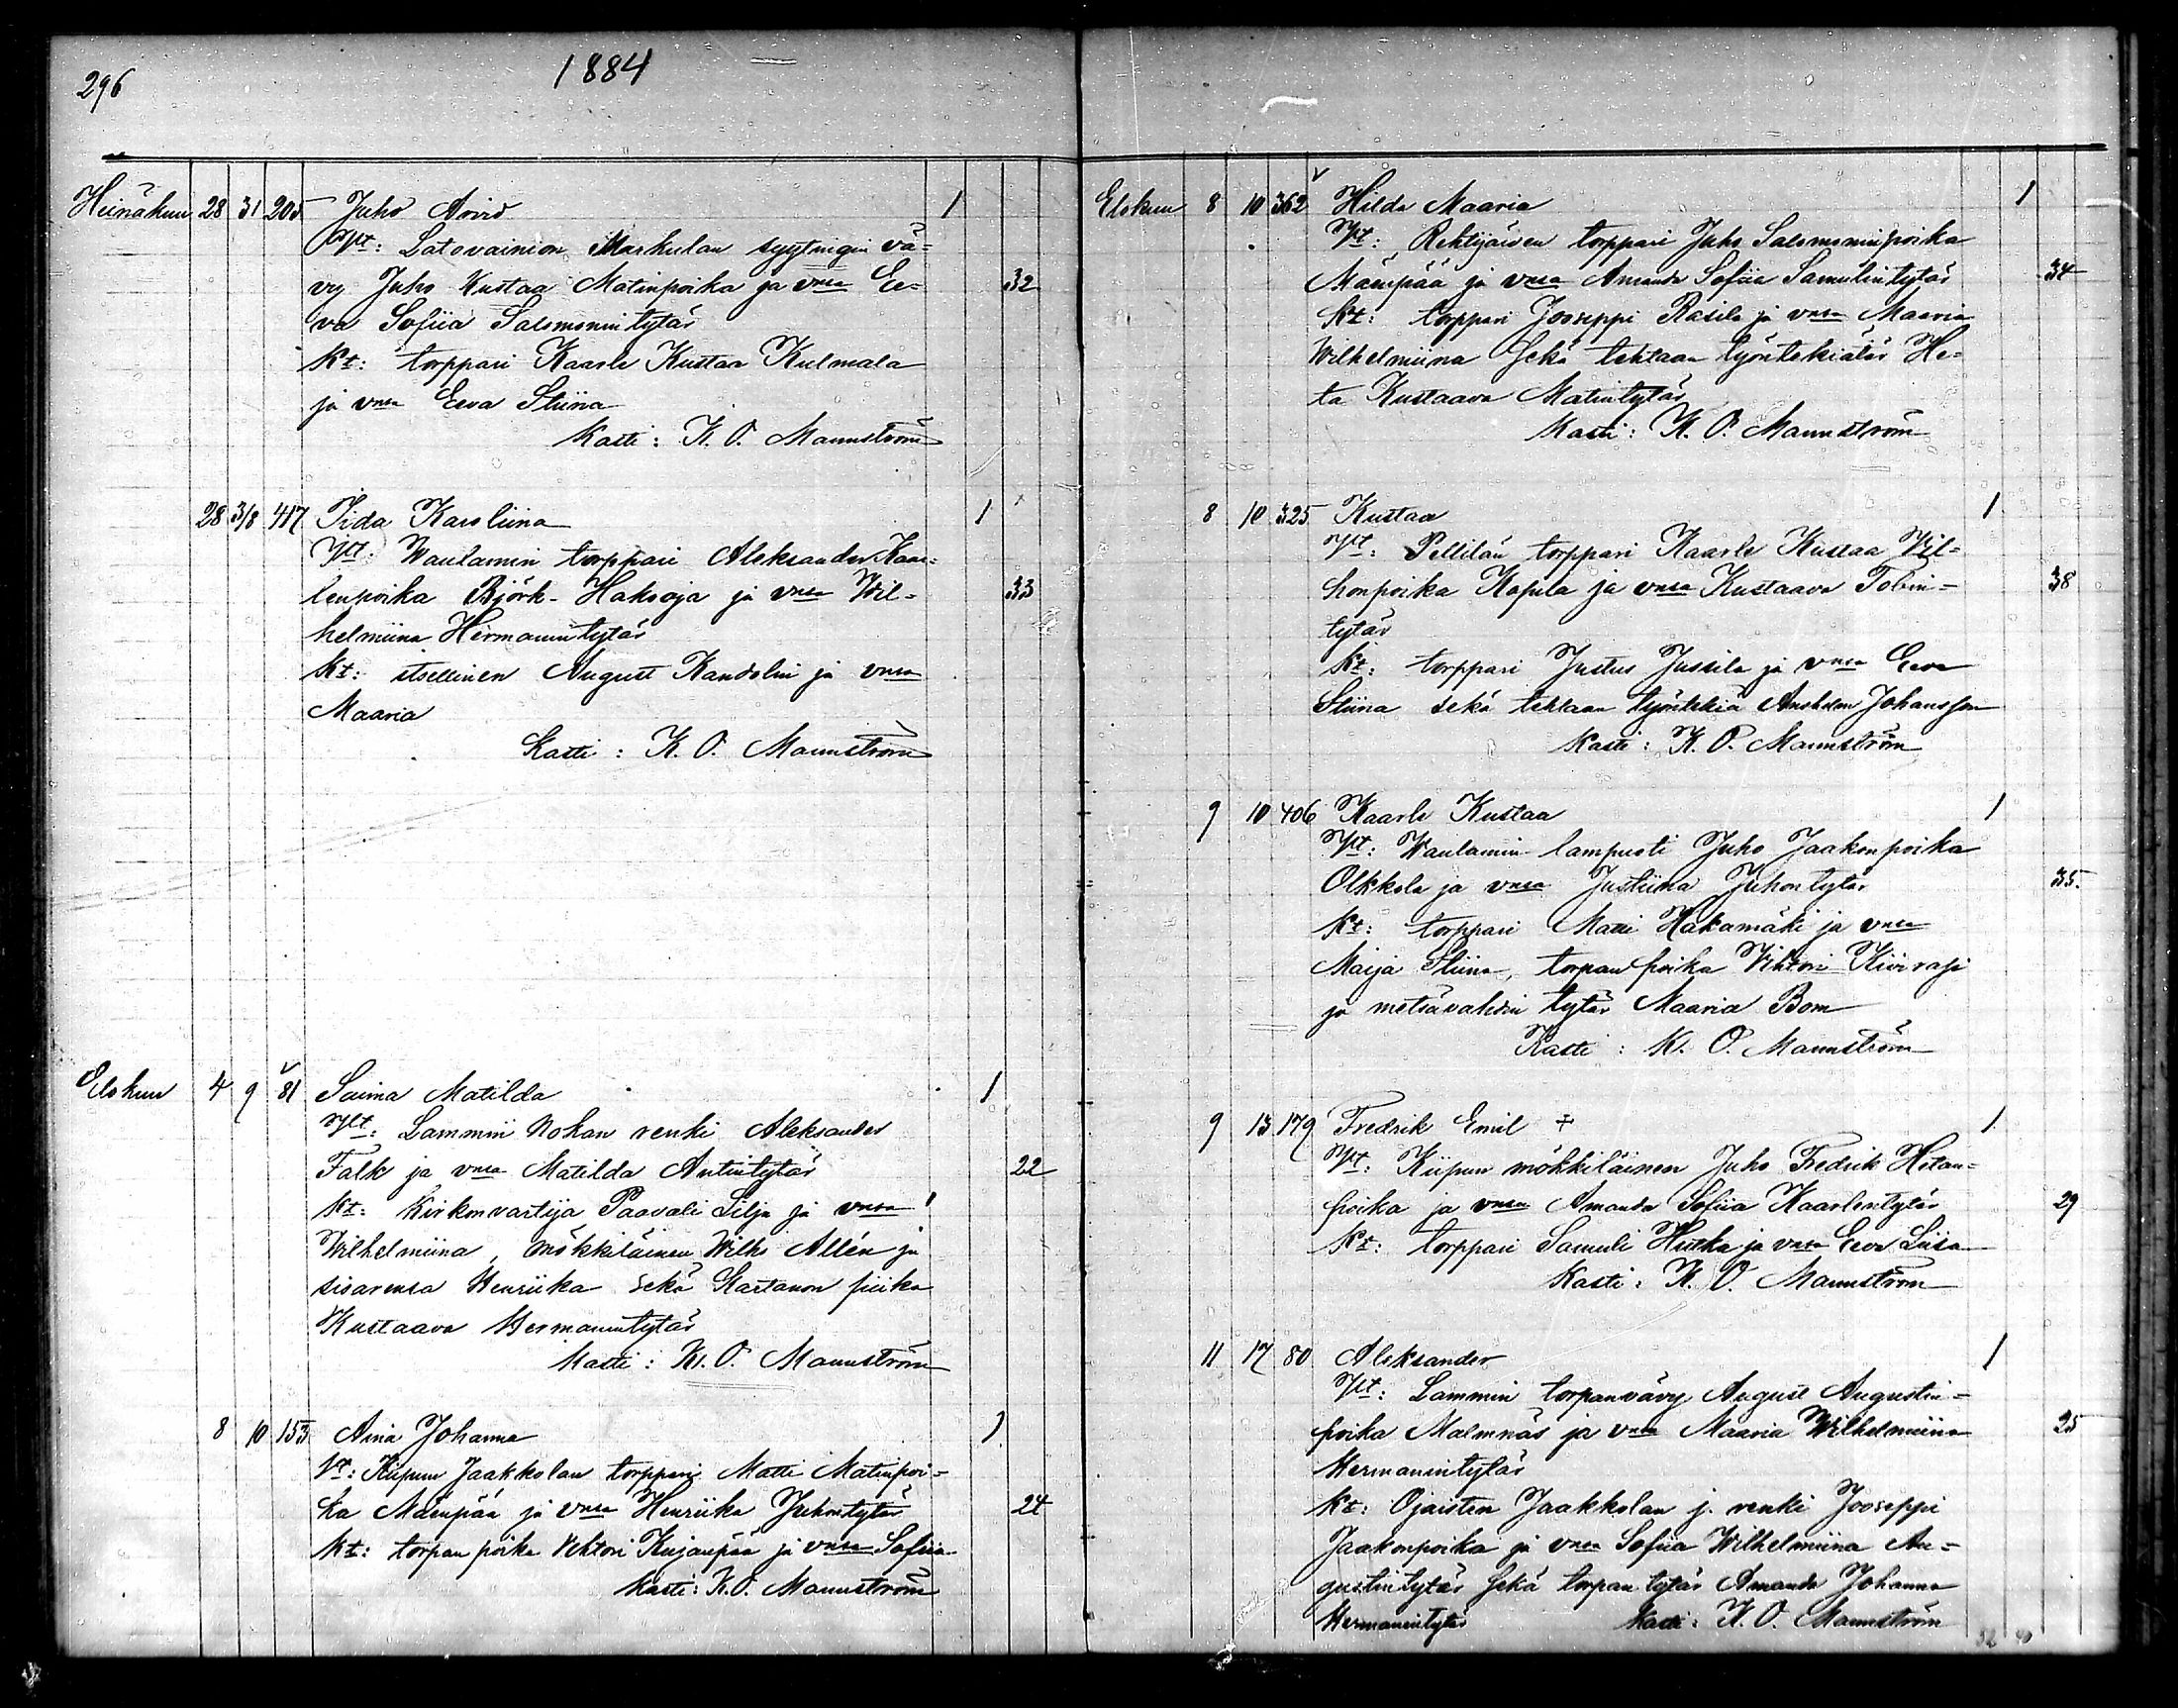 296
1884
Heinäkuu 28 31 205 Juho Arvid 1
Vlt: Latovainion Markulan syytingin vä=
vy Juho Kustaa Matinpoika ja vnsa Ee= 32
va Sofiia Salomonintytär
Kt: torppari Kaarle Kustaa Kulmala
ja vnsa Eeva Stiina
Kasti: K. O. Mannström
28 3/8 417 Iida Karoliina 1
Vlt: Vaulamin torppari Aleksander Kaar=
lenpoika Björk-Haksoja ja vnsa Wil= 33
helmiina Hermannintytär
Kt: itsellinen August Randolin ja vnsa
Maaria
Kasti: K. O. Mannström
Elokuu 4 9 81 Saima Matilda 1
Vlt: Lammin Nohan renki Aleksander
Falk ja vnsa Matilda Antintytär 22
Kt: Kirkonvartija Paavali Lilja ja vnsa
Wilhelmiina, mökkiläinen Wilho Allén ja
sisarensa Henriika sekä Kartanon piika
Kustaava Hermannintytär
Kasti: K. O. Mannström
8 10 153 Aina Johanna 1
Vt: Kiipun Jaakkolan torppari Matti Matinpoi=
ka Mäenpää ja vnsa Henriika Juhontytär 24
Kt: torpan poika Vihtori Kujanpää ja vnsa Sofiia
Kasti: K. O. Mannström
Elokuu 8 10 362 Hilda Maaria 1
Vlt: Rehtijärven torppari Juho Salomoninpoika
Mäenpää ja vnsa Amanda Sofiia Samulintytär 34
Kt: torppari Jooseppi Rasila ja vnsa Maaria
Wilhelmiina sekä tehtaan työntekiätär He=
ta Kustaava Matintytär
Kasti: K. O. Mannström
8 10 325 Kustaa 1
Vlt: Pellilän torppari Kaarle Kustaa Vil=
honpoika Kapila ja vnsa Kustaava Tobin= 38
tytär
Kt: torppari Justus Jussila ja vnsa Eeva
Stiina sekä tehtaan työntekiä Anshelm Johansson
Kasti: K. O. Mannström
9 10 406 Kaarle Kustaa 1
Vlt: Vaulamin lampuoti Juho Jaakonpoika
Olkkola ja vnsa Justiina Juhontytär 35.
Kt: torppari Matti Hakamäki ja vnsa
Maija Stiina, torpan poika Vihtori
ja metsävahdin tytär Maaria Bom
Kasti: K. O. Mannström
9 13 179 Fredrik Emil + 1
Vlt: Kiipun mökkiläinen Juho Fredrik
poika ja vnsa Amanda Sofiia Kaarlentytär 29
Kt: torppari Samuli Hutka ja vnsa Eeva Liisa
Kasti: K. O. Mannström
11 17 80 Aleksander 1
Vlt: Lammin torpanvävy August Augustin=
poika Malmnäs ja vnsa Maaria Wilhelmiina 25
Hermannintytär
Kt: Ojaisten Jaakkolan j. renki Jooseppi
Jaakonpoika ja vnsa Sofiia Wilhelmiina Au=
gustintytär sekä torpan tytär Amanda Johanna
Hermannintytär Kasti: K. O. Mannström